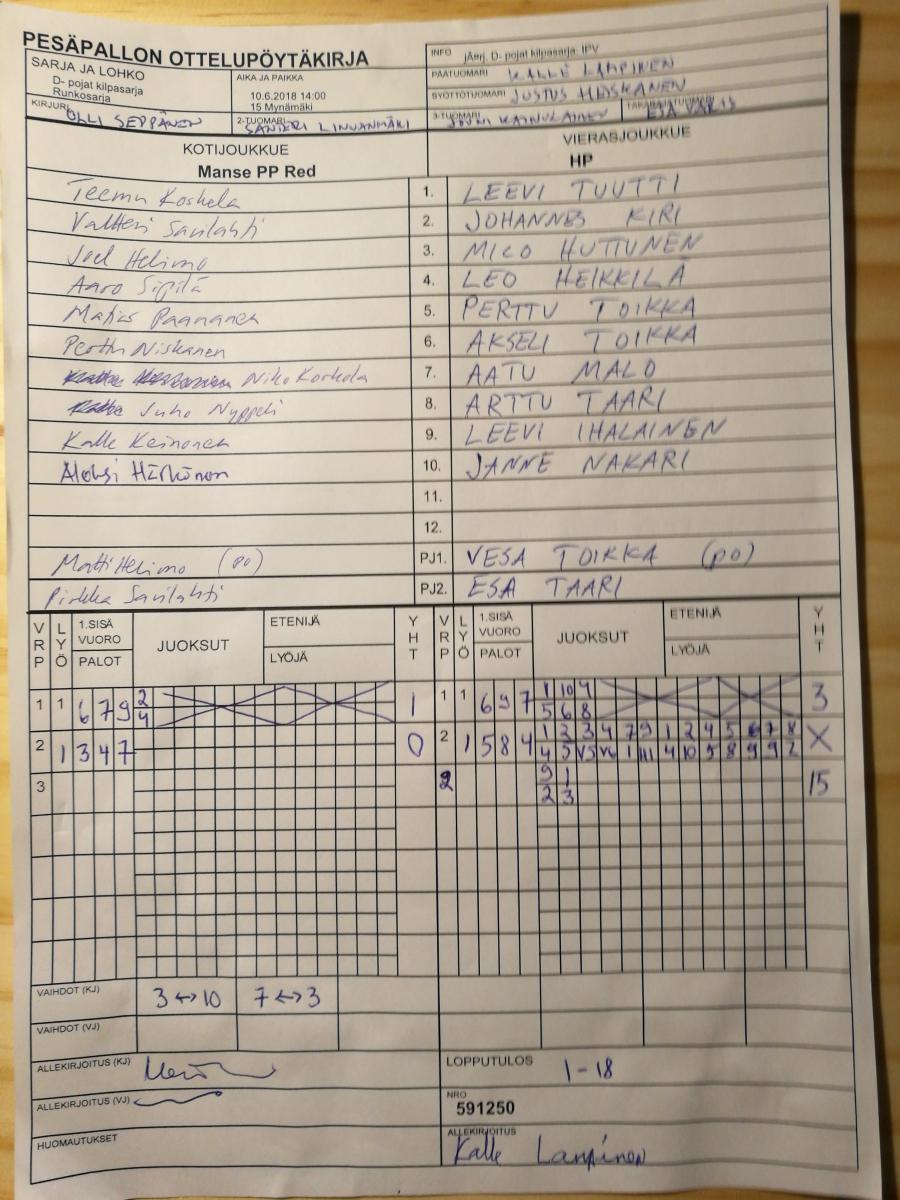 PESÄPALLON OTTELUPÖYTÄKIRJA
SARJA JA LOHKO
D- pojat kilpasarja
Runkosarja
AIKA JA PAIKKA
10.6.2018 14:00
15 Mynämäki
INFO jÄrj. D- pojat kilpasarja: IPV
PÄÄTUOMARI KALLE LAMPINEN
SYÖTTÖTUOMARI JUSTUS
KIRJURI OLLI SEPPÄNEN
2-TUOMARI SANTERI LINNANMÄKI
3-TUOMARI KAINULAINEN
TAKARAJATUOMARI ESA
KOTIJOUKKUE
Manse PP Red
VIERASJOUKKUE
HP
Teemu Koskela 1. LEEVI TUUTTI
Valtteri Savilahti 2. JOHANNES KIRI
Joel Helimo 3. MICO HUTTUNEN
Aaro Sipilä 4. LEO HEIKKILÄ
Matias Paananen 5. PERTTU TOIKKA
Perttu Niskanen 6. AKSELI TOIKKA
Niko Korhola 7. AATU MALO
Juho Nyppeli 8. ARTTU TAARI
Kalle Keinonen 9. LEEVI IHALAINEN
Aleksi Härkönen 10. JANNE NAKARI
11.
12.
Matti Helimo (po) PJ1. VESA TOIKKA (po)
Pirkka Savilahti PJ2. ESA TAARI
VRP LYÖ 1.SISÄ VUORO PALOT JUOKSUT ETENIJÄ LYÖJÄ YHT VRP LYÖ 1.SISÄ VUORO PALOT JUOKSUT ETENIJÄ LYÖJÄ YHT
1 1 6 7 9 2 1 1 1 6 9 7 1 10 4 3
4 5 6 8
2 1 3 4 7 0 2 1 5 8 4 1 2 3 4 7 9 1 2 4 5 6 7 8 X
4 5 V5 V6 1 4 10 5 8 9 9 2
3 2 9 1 15
2 3
VAIHDOT (KJ) 3↔10 7↔3
VAIHDOT (VJ)
ALLEKIRJOITUS (KJ)
LOPPUTULOS 1-18
ALLEKIRJOITUS (VJ)
NRO
591250
HUOMAUTUKSET
ALLEKIRJOITUS
Kalle Lampinen